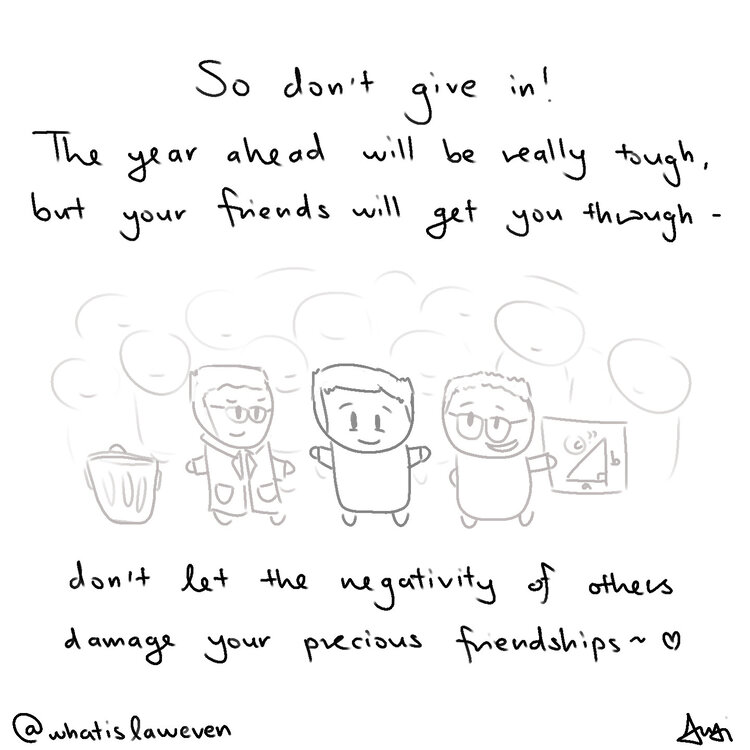 So don't give in!
The year ahead will be really tough,
but your friends will get you through -
c
b
a
don't let the negativity of others
damage your precious friendships ~ ♡
@whatislaweven